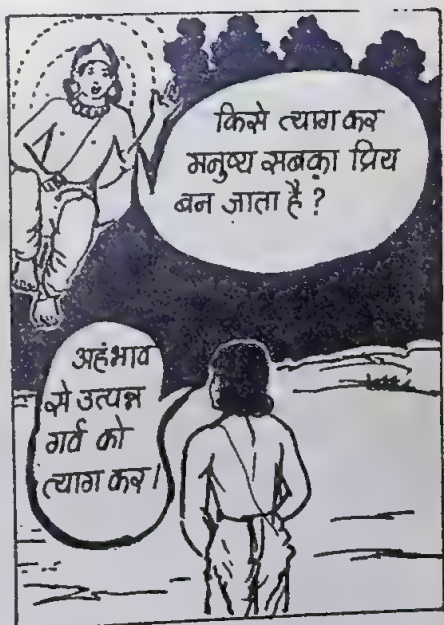 किसे त्याग कर
मनुष्य सबका प्रिय
बन जाता है ?
अहंभाव
से उत्पन्न
गर्व को
त्याग कर ।